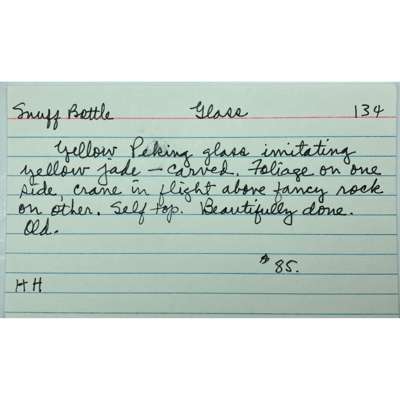 Snuff Bottle Glass 134
Yellow Peking glass imitating
yellow jade — carved. Foliage on one
side, crane in flight above fancy rock
on other. Self top. Beautifully done.
Old.
$85.
HH